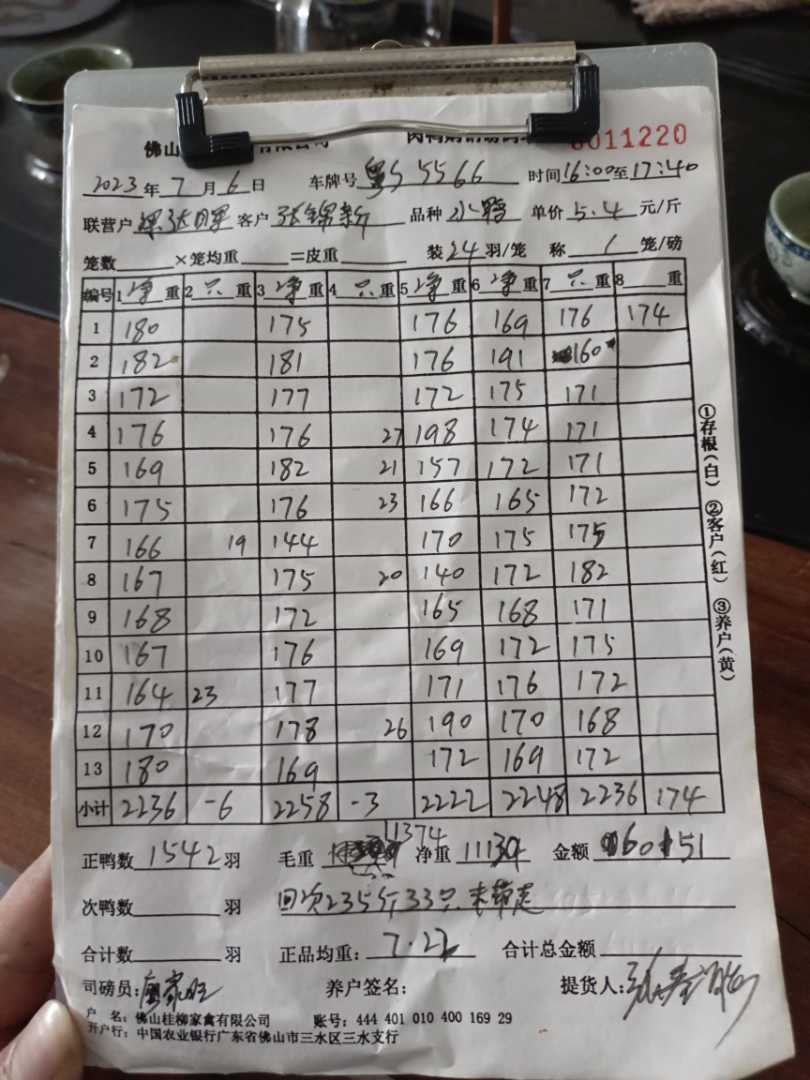 佛山 有限公司 肉鸭购销磅码单 0011220
2023年7月6日 车牌号 5566 时间16:00至17:40
联营户 客户 张锦新 品种 水鸭 单价5.4元/斤
笼数 ×笼均重 =皮重 装24羽/笼 称1笼/磅
编号 1净重 2只重 3净重 4只重 5净重 6净重 7只重 8重
1 180 175 176 169 176 174
2 182 181 176 191 160
3 172 177 172 175 171
4 176 176 27 198 174 171
5 169 182 21 157 172 171
6 175 176 23 166 165 172
7 166 19 144 170 175 175
8 167 175 20 140 172 182
9 168 172 165 168 171
10 167 176 169 172 175
11 164 23 177 171 176 172
12 170 178 26 190 170 168
13 180 169 172 169 172
小计 2236 -6 2258 -3 2222 2248 2236 174
①存根(白) ②客户(红) ③养户(黄)
11374
正鸭数1542羽 毛重 净重 11139 金额 60151
次鸭数 羽 回次235斤33只未带走
合计数 羽 正品均重: 7.22 合计总金额
司磅员: 养户签名: 提货人:
户 名: 佛山桂柳家禽有限公司 账号: 444 401 010 400 169 29
开户行: 中国农业银行广东省佛山市三水区三水支行